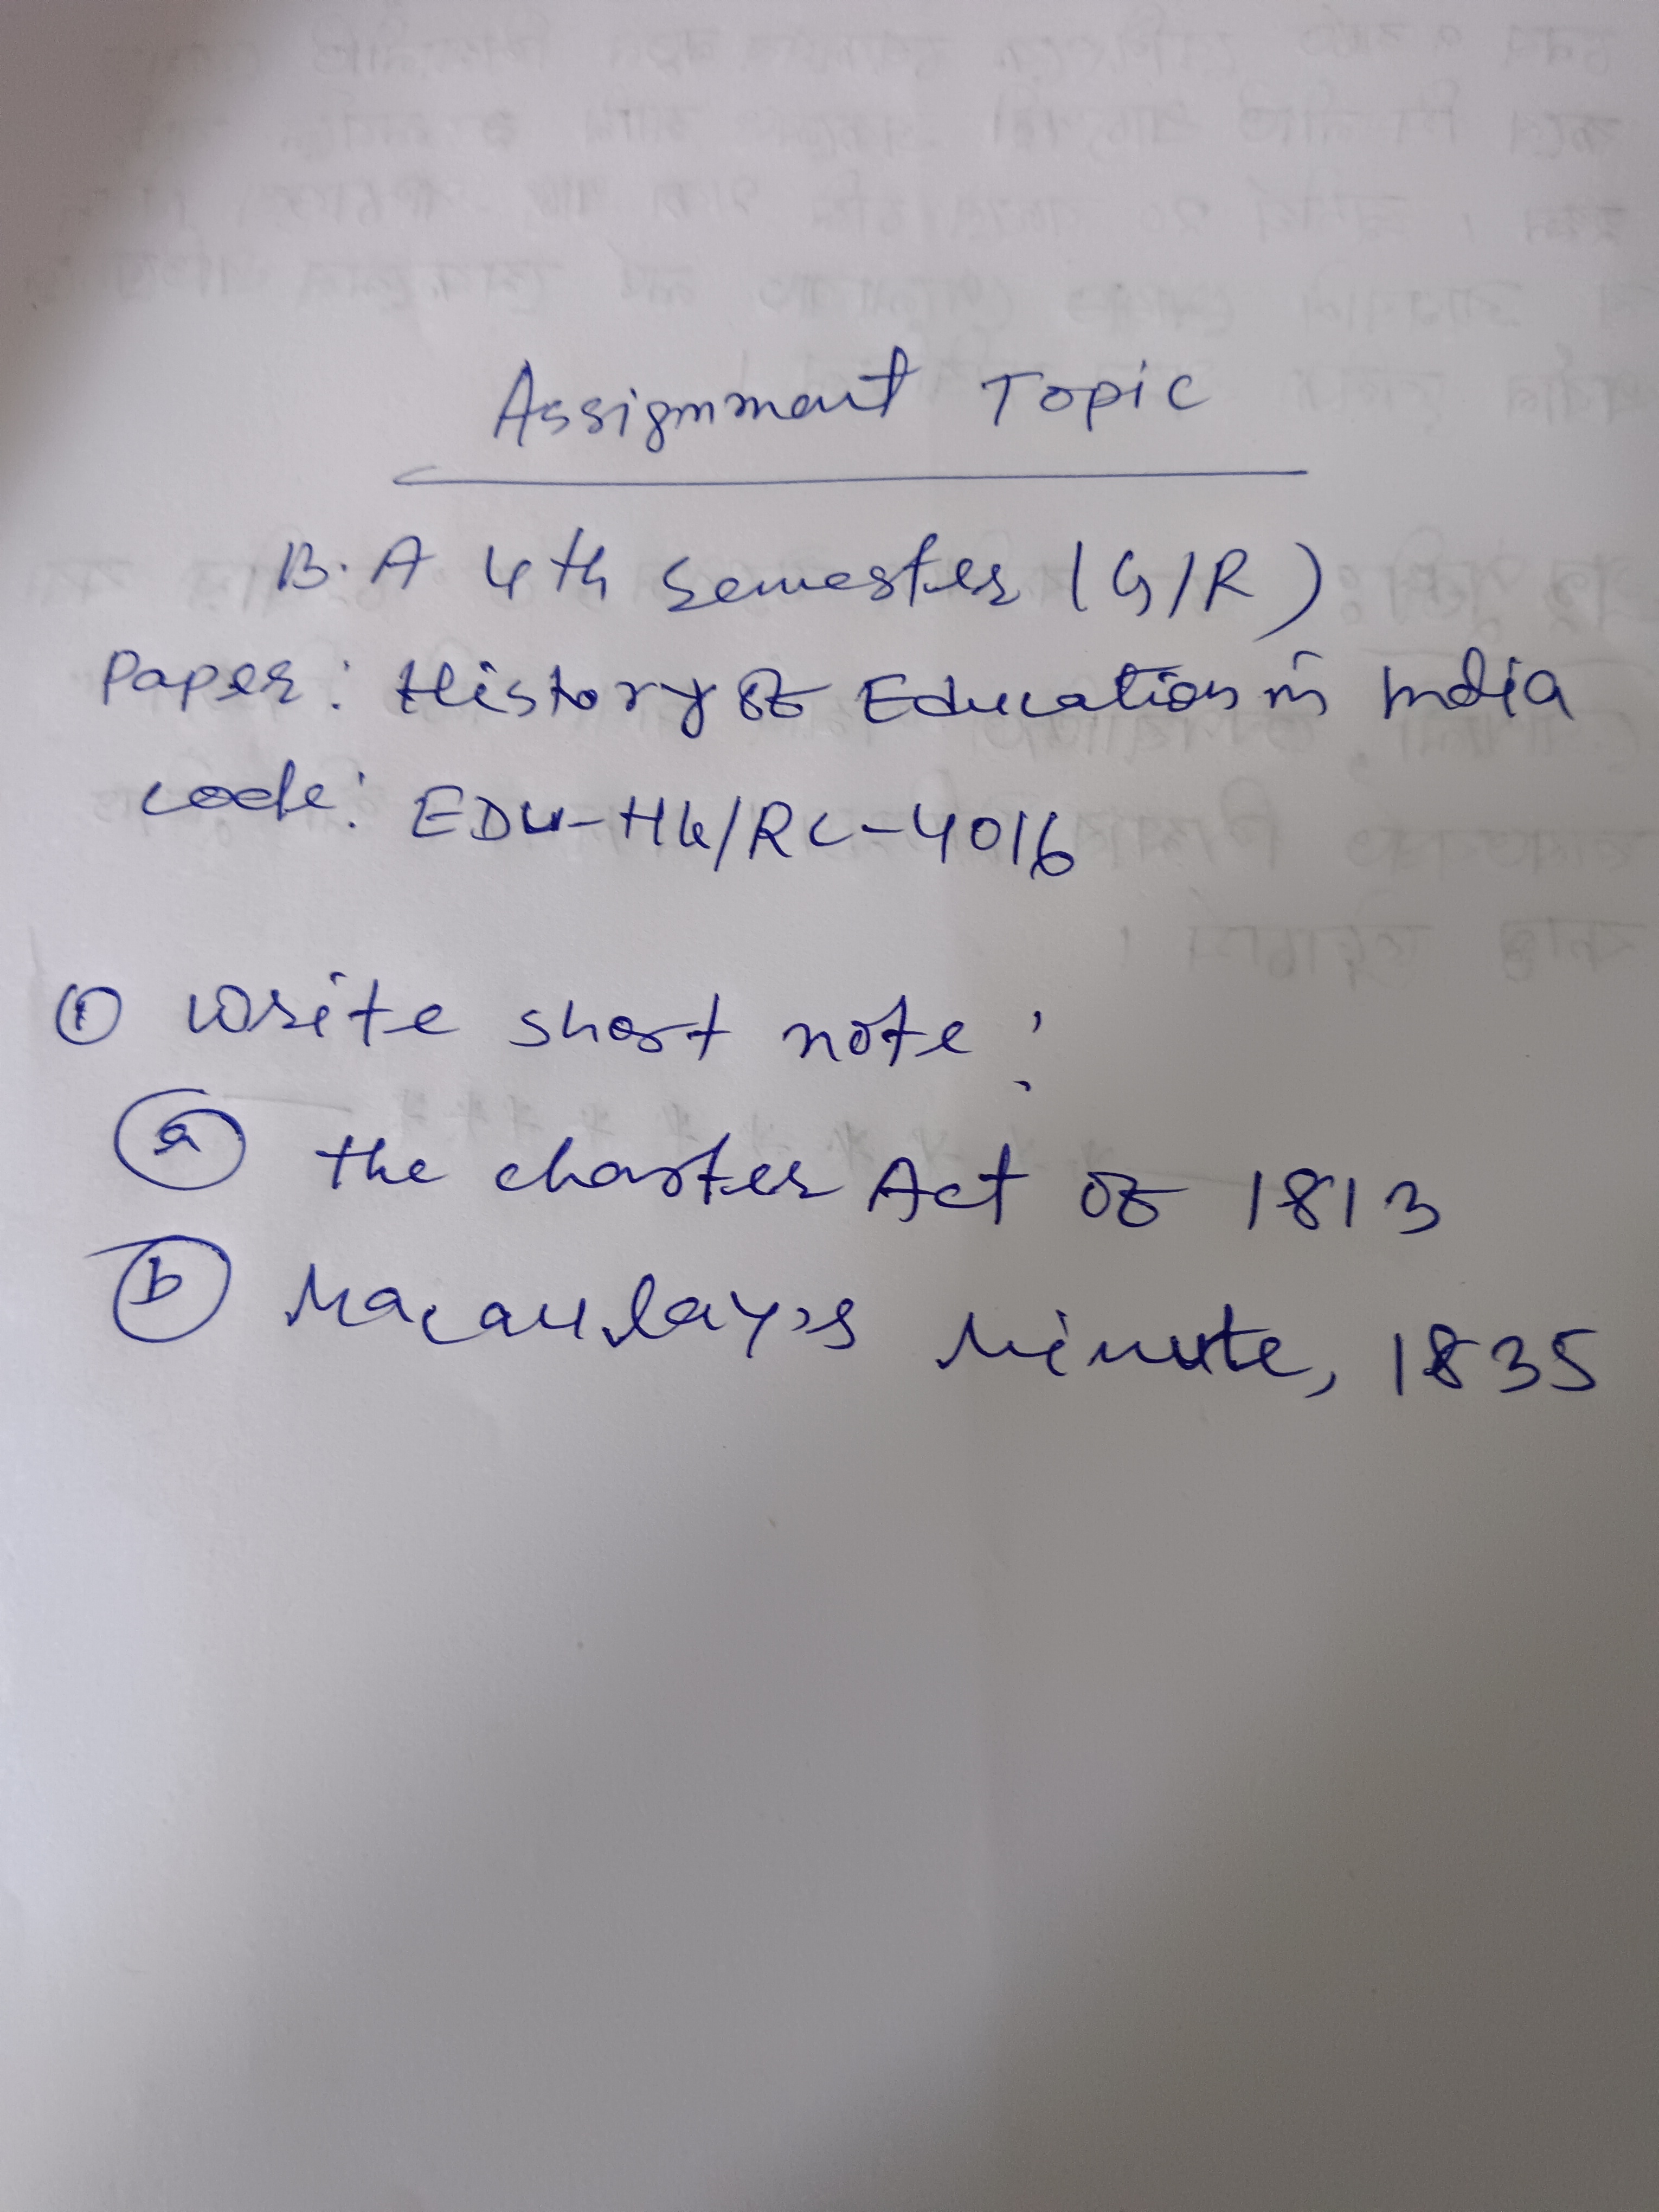 Assignment Topic
B.A 4th Semester (G/R)
Paper: History of Education in India
code: EDU-HG/RC-4016
① Write short note:
ⓐ the charter Act of 1813
ⓑ Macaulay's Minute, 1835